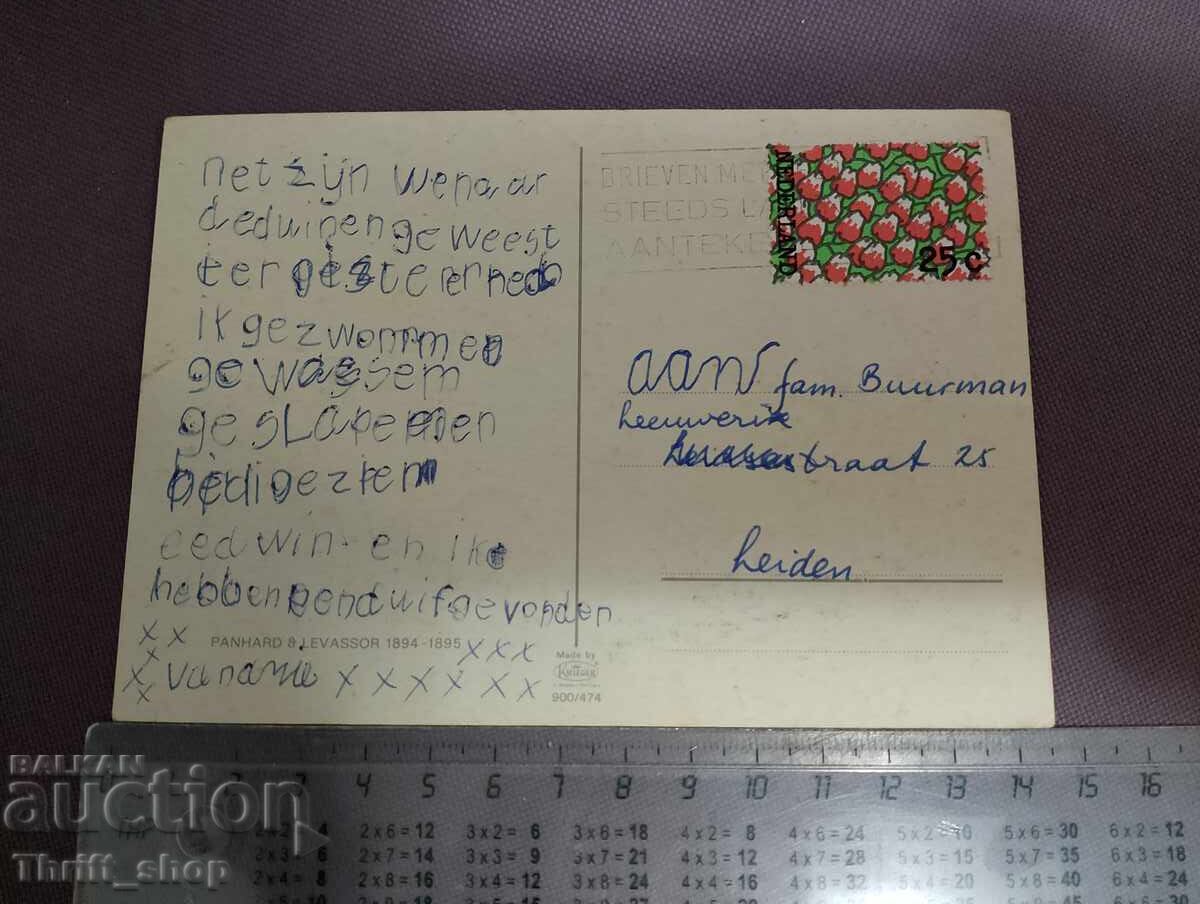 net zijn wenaar
deduinengeweest
eergisterenheb
ikgezwommen
gewassem
geslapenen
eedwin-en ik
hebbeneenduifgevonden
x x PANHARD & LEVASSOR 1894-1895 x x x
x
x vanamie x x x x x x
x
Made by
Krüger
900/474
BRIEVEN ME
STEEDS
AANTEKE
NEDERLAND
25 c
aan fam. Buurman
Leeuwerik
straat 25
Leiden
3 4 5 6 7 8 9 10 11 12 13 14 15 16
2 x 6 = 12 3 x 2 = 6 3 x 6 = 18 4 x 2 = 8 4 x 6 = 24 5 x 2 = 10 5 x 6 = 30 6 x 2 = 12
2 x 3 = 6 2 x 7 = 14 3 x 3 = 9 3 x 7 = 21 4 x 3 = 12 4 x 7 = 28 5 x 3 = 15 5 x 7 = 35 6 x 3 = 18
2 x 4 = 8 2 x 8 = 16 3 x 4 = 12 3 x 8 = 24 4 x 4 = 16 4 x 8 = 32 5 x 4 = 20 5 x 8 = 40 6 x 4 = 24
BALKAN
auction
Thrift_shop